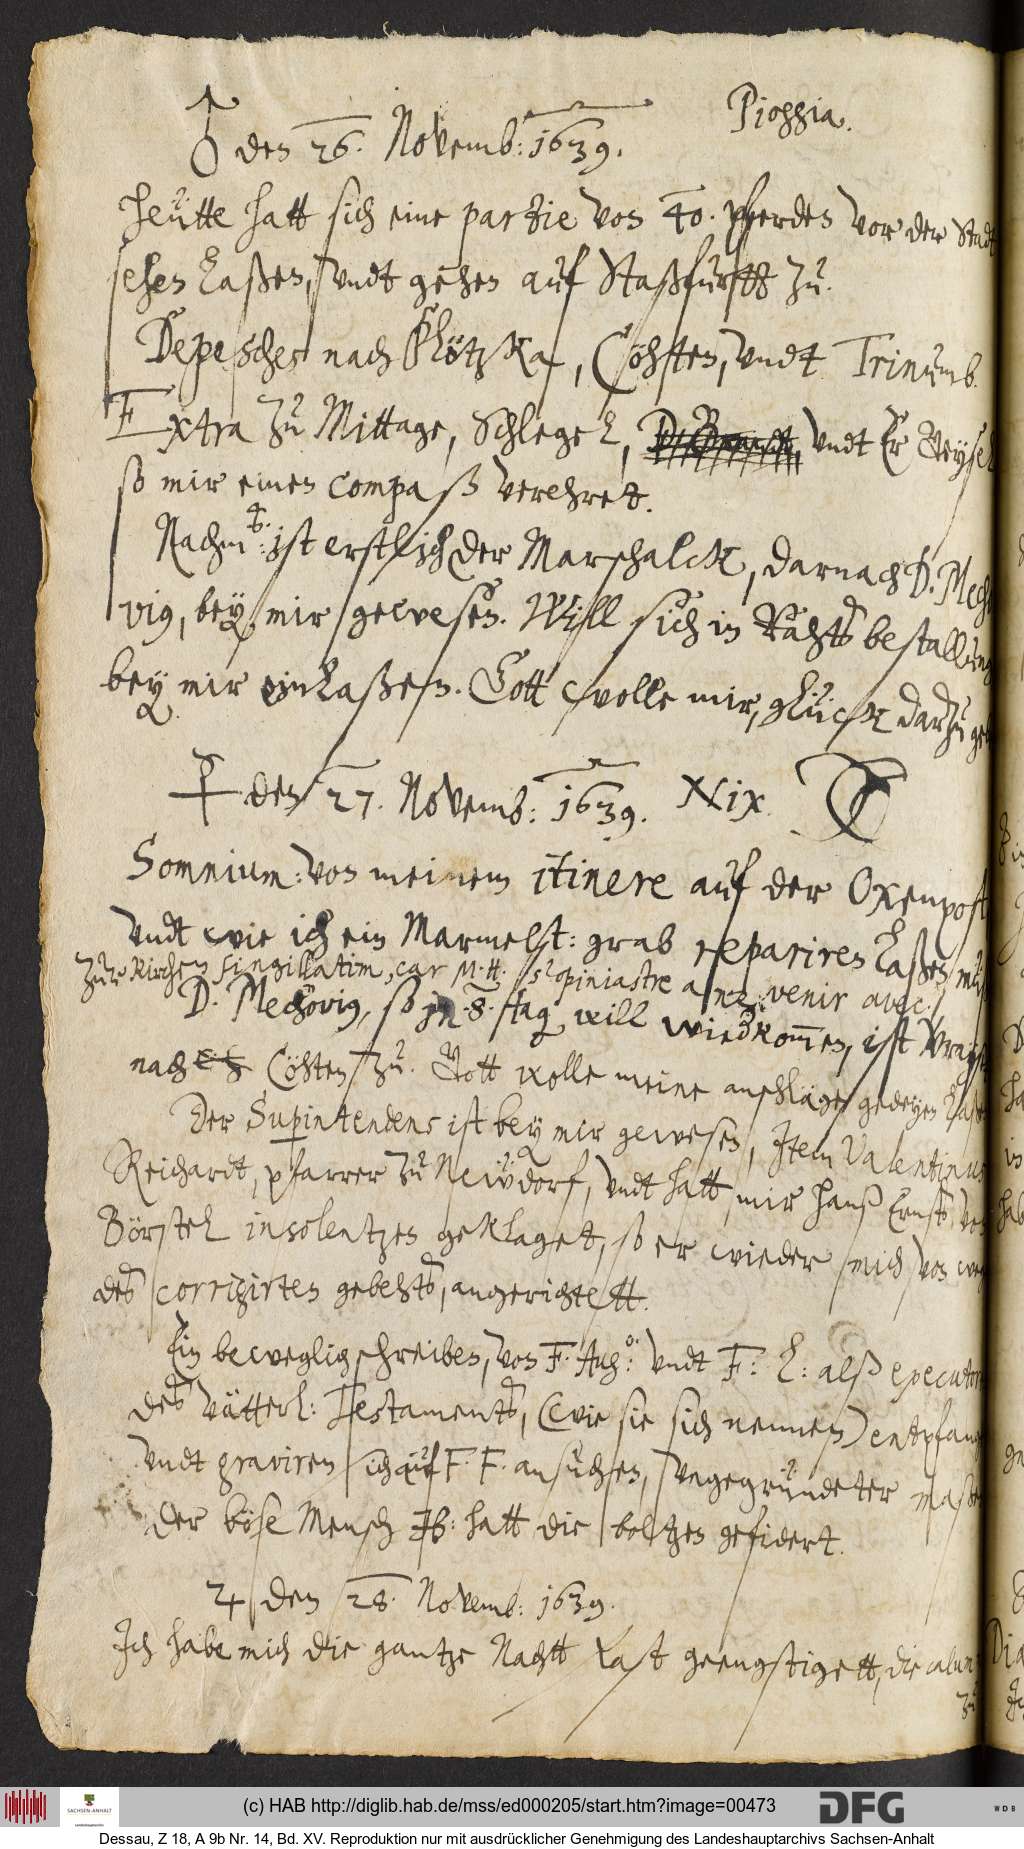 ♂ den 26. Novemb: 1639. Pioggia.
Heütte hatt sich eine partie von 40. pferden vor der Stadt
sehen laßen, vndt gehen auf Staßfurtt zu.
Depeschen nach Plötzka, Cöhten, vndt Trinumb.
Extra zu Mittage, Schlegel, vndt Er
so mir einen compaß verehret.
Nachm: ist erstlich der Marschalck, darnach D. Mech
vius, bey mir gewesen. Will sich in Rahts bestallung
bey mir einlaßen. Gott wolle mir, glück darzu
☿ den 27. Novemb: 1639. Nix
Somnium: von meinem itinere auf der Oxenpost
vndt wie ich ein Marmelst: grab repariren laßen
zur Kirchen singillatim, car M. H. s'opiniastre a ne venir avec
D. Mechovius, so in 8. tag. will wiedkommen, ist
nach Cöhten zu. Gott wolle meine anschläge gedeyen
Der Supintendens ist bey mir gewesen, Item Valentinus
Reichardt, pfarrer zu Neündorf, vndt hatt mir Hanß Ernsts von
Börstel insolentzen geklaget, so er wieder mich von
des corrigirten gebehts, angerichtett.
Ein beweglich schreiben, von F. Aug: vndt F: L: alß executorn
des vätterl: Testaments, (wie sie sich nennen) entpfang
vndt graviren sich auf F. F. ansuchen, vngegründeter
Der böse Mensch hatt die boltzen gefidert.
♃ den 28. Novemb: 1639.
Ich habe mich die gantze Nachtt fast geengstigett, die
zu
(c) HAB http://diglib.hab.de/mss/ed000205/start.htm?image=00473
SACHSEN-ANHALT
DFG
WDB
Dessau, Z 18, A 9b Nr. 14, Bd. XV. Reproduktion nur mit ausdrücklicher Genehmigung des Landeshauptarchivs Sachsen-Anhalt